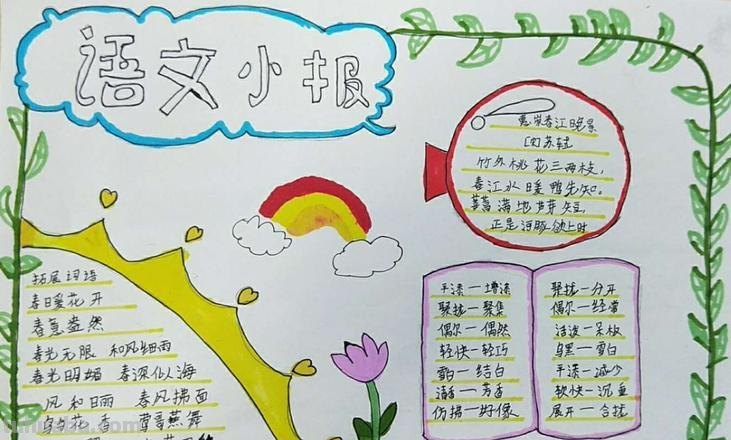 语文小报
惠崇春江晚景
[宋]苏轼
竹外桃花三两枝,
春江水暖鸭先知。
蒌蒿满地芦芽短,
正是河豚欲上时
拓展词语
春暖花开
春意盎然
春光无限 和风细雨
春光明媚 春深似海
风和日丽 春风拂面
鸟语花香 莺歌燕舞
平添—增添
聚拢—聚集
偶尔—偶然
轻快—轻巧
雪白—洁白
清香—芳香
仿佛—好像
聚拢—分开
偶尔—经常
活泼—呆板
乌黑—雪白
平添—减少
软快—沉重
展开—合拢